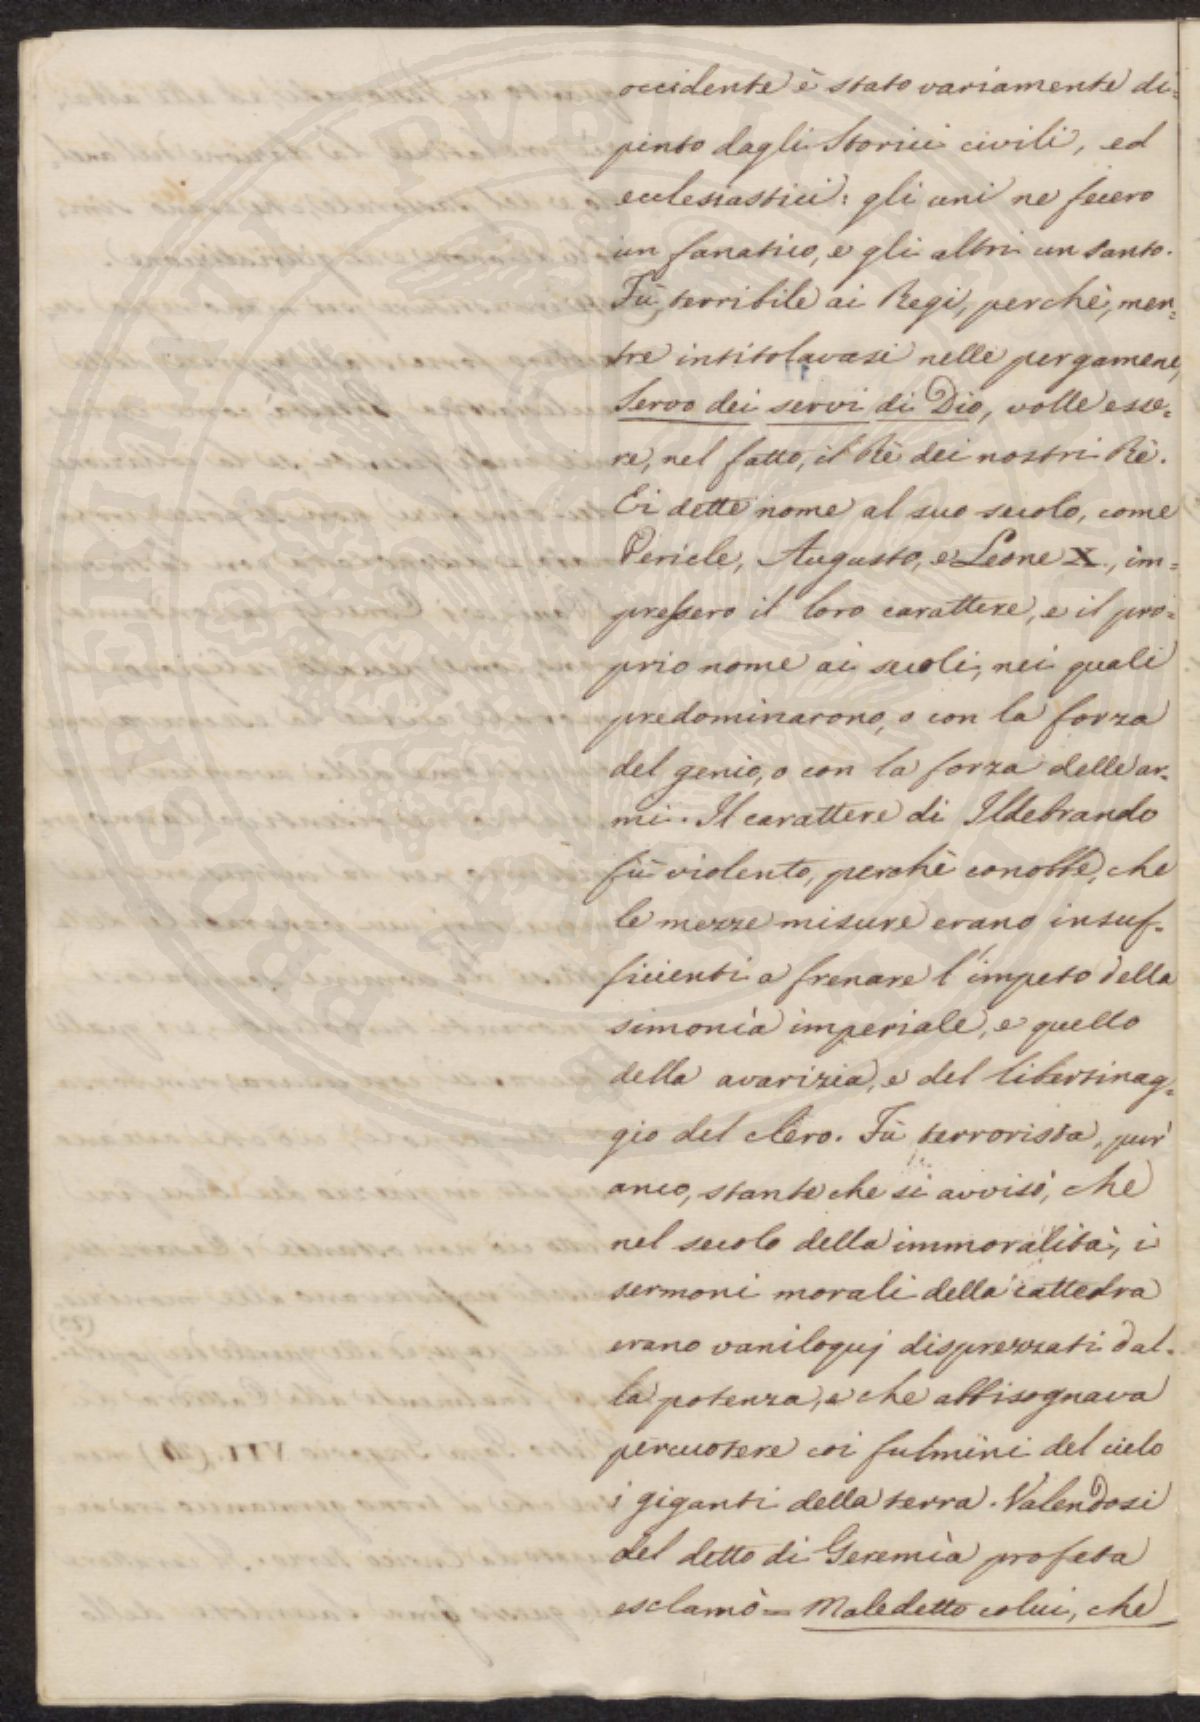 occidente è stato variamente di=
pinto dagli Storici civili, ed
ecclesiastici: gli uni ne fecero
un fanatico, e gli altri un santo.
Fù terribile ai Regi, perchè, men=
tre intitolavasi nelle pergamene,
Servo dei servi di Dio, volle esse=
re, nel fatto, il Rè dei nostri Rè.
Ei dette nome al suo secolo, come
Pericle, Augusto, e Leone X., im=
pressero il loro carattere, e il pro=
prio nome ai secoli, nei quali
predominarono, o con la forza
del genio, o con la forza delle ar=
mi. Il carattere di Ildebrando
fù violento, perchè conobbe, che
le mezze misure erano insuf=
ficienti a frenare l'impeto della
simonìa imperiale, e quello
della avarizia, e del libertinag=
gio del clero. Fù terrorista, pur'
anco, stante che si avvisò, che
nel secolo della immoralità, i
sermoni morali della cattedra
erano vaniloquj disprezzati dal=
la potenza, e che abbisognava
percuotere coi fulmini del cielo
i giganti della terra. Valendosi
del detto di Geremìa profeta
esclamò = Maledetto colui, che